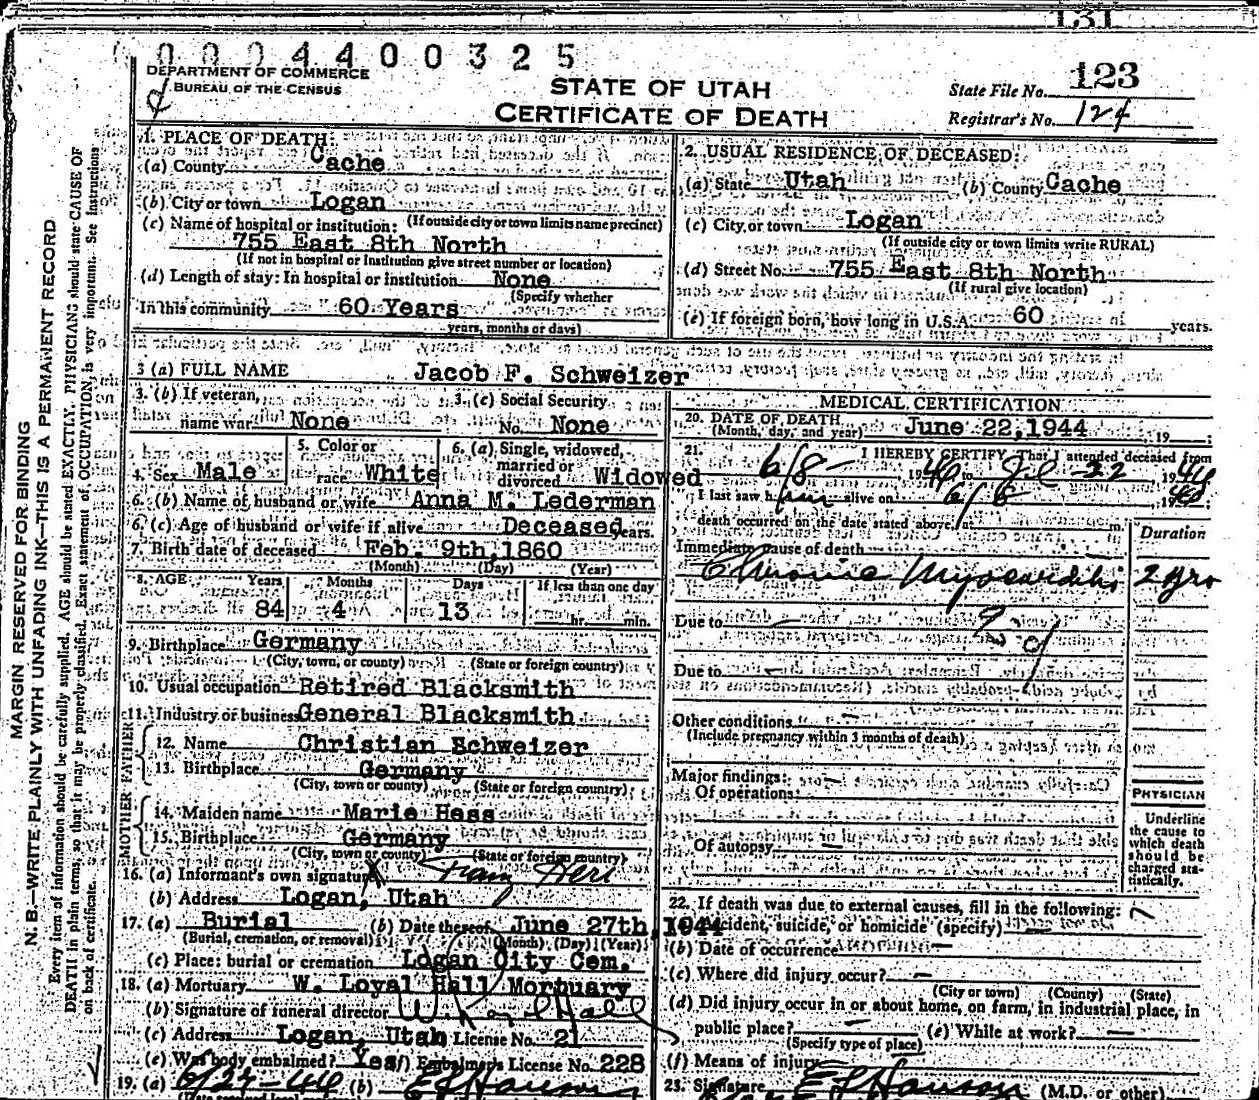 131
0004400325
DEPARTMENT OF COMMERCE
BUREAU OF THE CENSUS
STATE OF UTAH
CERTIFICATE OF DEATH
State File No. 123
Registrar's No. 124
MARGIN RESERVED FOR BINDING
N. B.—WRITE PLAINLY WITH UNFADING INK—THIS IS A PERMANENT RECORD
Every item of information should be carefully supplied. AGE should be stated EXACTLY. PHYSICIANS should state CAUSE OF
DEATH in plain terms, so that it may be properly classified. Exact statement of OCCUPATION is very important. See instructions
on back of certificate.
1. PLACE OF DEATH:
(a) County Cache
(b) City or town Logan
(If outside city or town limits name precinct)
(c) Name of hospital or institution:
755 East 8th North
(If not in hospital or institution give street number or location)
(d) Length of stay: In hospital or institution None
(Specify whether
In this community 60 Years
years, months or days)
2. USUAL RESIDENCE OF DECEASED:
(a) State Utah (b) County Cache
(c) City or town Logan
(If outside city or town limits write RURAL)
(d) Street No. 755 East 8th North
(If rural give location)
(e) If foreign born, how long in U.S.A. 60 years.
3 (a) FULL NAME Jacob F. Schweizer
3. (b) If veteran, name war None
3. (c) Social Security No. None
4. Sex Male
5. Color or race White
6. (a) Single, widowed, married or divorced Widowed
6. (b) Name of husband or wife Anna M. Lederman
6. (c) Age of husband or wife if alive Deceased years.
7. Birth date of deceased Feb. 9th, 1860
(Month) (Day) (Year)
8. AGE Years Months Days If less than one day
84 4 13 hr. min.
9. Birthplace Germany
(City, town, or county) (State or foreign country)
10. Usual occupation Retired Blacksmith
11. Industry or business General Blacksmith
FATHER
12. Name Christian Schweizer
13. Birthplace Germany
(City, town or county) (State or foreign country)
MOTHER
14. Maiden name Marie Hess
15. Birthplace Germany
(City, town or county) (State or foreign country)
16. (a) Informant's own signature
(b) Address Logan, Utah
17. (a) Burial (b) Date thereof June 27th, 1944
(Burial, cremation, or removal) (Month) (Day) (Year)
(c) Place: burial or cremation Logan City Cem.
18. (a) Mortuary W. Loyal Hall Mortuary
(b) Signature of funeral director W. Loyal Hall
(c) Address Logan, Utah License No. 21
(e) Was body embalmed? Yes (f) Embalmer's License No. 228
19. (a) 6/27-44 (b) E L Hanson
MEDICAL CERTIFICATION
20. DATE OF DEATH June 22, 1944, 19
(Month, day, and year)
21. I HEREBY CERTIFY, That I attended deceased from
6/8- 1940 to 22 1944
I last saw him alive on 6/8, 19
death occurred on the date stated above, at m.
Duration
Immediate cause of death
Chronic Myocarditis 2 yrs
Due to
Due to
Other conditions
(Include pregnancy within 3 months of death)
Major findings:
Of operations
Of autopsy
PHYSICIAN
Underline
the cause to
which death
should be
charged sta-
tistically.
22. If death was due to external causes, fill in the following:
(a) Accident, suicide, or homicide (specify)
(b) Date of occurrence
(c) Where did injury occur?
(City or town) (County) (State)
(d) Did injury occur in or about home, on farm, in industrial place, in
public place? (e) While at work?
(Specify type of place)
(f) Means of injury
23. Signature E L Hanson (M.D. or other)